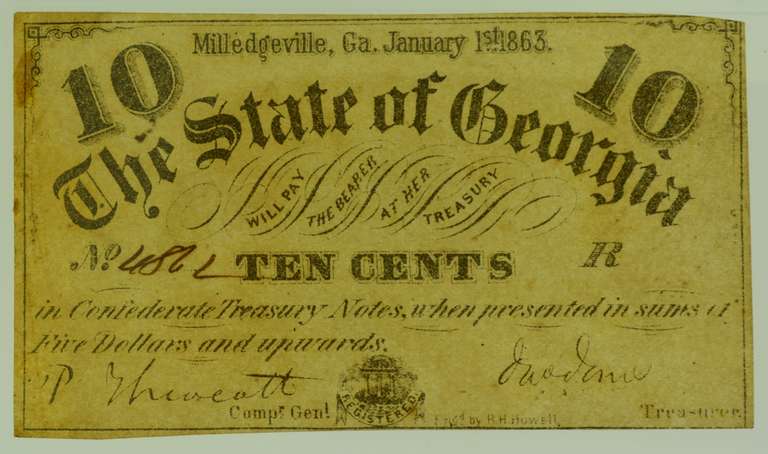 Milledgeville, Ga. January 1st 1863.
10 10
The State of Georgia
WILL PAY THE BEARER AT HER TREASURY
No. 4862 TEN CENTS R
in Confederate Treasury Notes, when presented in sums of
Five Dollars and upwards.
P Thweatt Jno Jones
Compr. Genl. REGISTERED Engd by R.H. Howell, Treasurer.